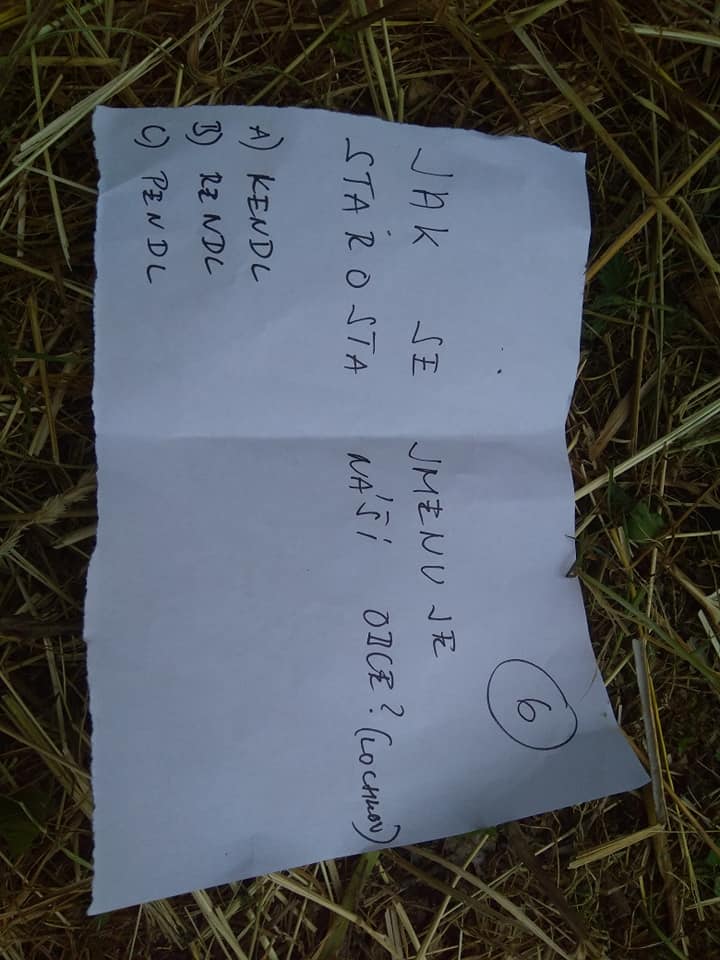 6
JAK SE JMENUJE
STAROSTA NAŠÍ OBCE? (LOCHKOV)
A) KENDL
B) RENDL
C) PENDL